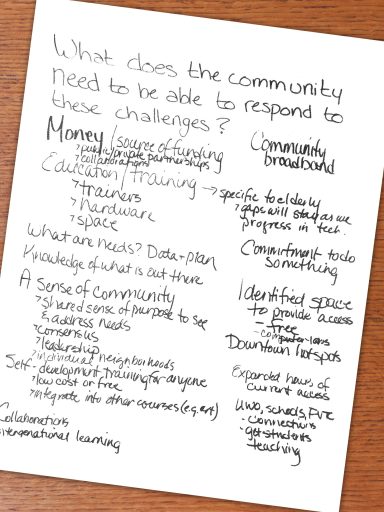 What does the community
need to be able to respond to
these challenges?
Money / source of funding
> public/private partnerships
> collaborations
Education / training → specific to elderly
> gaps will stay as we
progress in tech.
> trainers
> hardware
> space
What are needs? Data + plan
Knowledge of what is out there
A Sense of Community
> Shared sense of purpose to see
& address needs
> consensus
> leadership
> individual neighborhoods
Self-development training for anyone
> low cost or free
> integrate into other courses (e.g. art)
Collaborations
Intergenerational learning
Community
broadband
Commitment to do
something
Identified space
to provide access
- free
- computer loans
Downtown hotspots
Expanded hours of
current access
UWO, schools, FVTC
- Connections
- get students
teaching